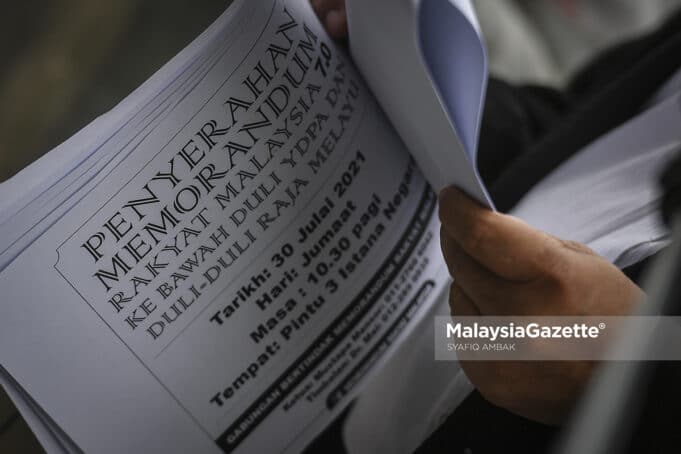 PENYERAHAN
MEMORANDUM
RAKYAT MALAYSIA 7.0
KE BAWAH DULI YDPA DAN
DULI-DULI RAJA MELAYU
Tarikh: 30 Julai 2021
Hari: Jumaat
Masa : 10.30 pagi
Tempat: Pintu 3 Istana Negara
GABUNGAN BERTINDAK MEMORANDUM RAKYAT
MalaysiaGazette®
SYAFIQ AMBAK